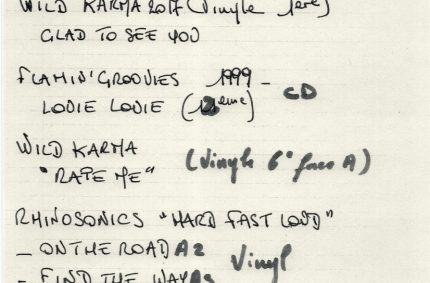 WILD KARMA 2017 (Vinyle 1ere)
GLAD TO SEE YOU
FLAMIN' GROOVIES 1999 - CD
LOUIE LOUIE (12eme)
WILD KARMA (Vinyle 6° face A)
"RAPE ME"
RHINOSONICS "HARD FAST LOUD"
- ON THE ROAD A2 Vinyl
- FIND THE WAY